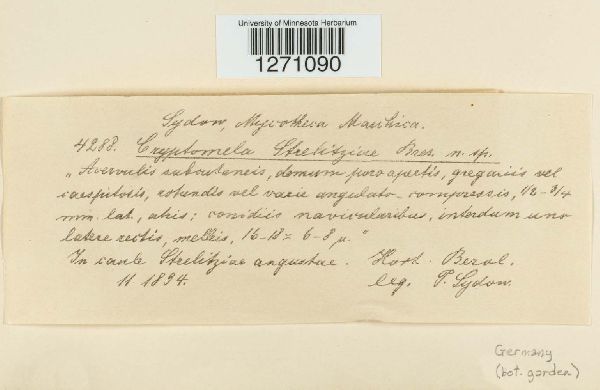 University of Minnesota Herbarium
1271090
Sydow, Mycotheca Marchica.
4288. Cryptomela Strelitziae Bres. n. sp.
"Acervulis subcutaneis, demum poro apertis, gregariis vel
caespitosis, rotundis vel varie angulato-compressis, 1/2-3/4
mm. lat, atris; conidiis navicularibus, interdum uno
latere rectis, melleis, 16-18 = 6-8 µ."
In caule Strelitziae angustae. Hort. Berol.
11 1894. leg. P. Sydow.
Germany
(bot. garden)